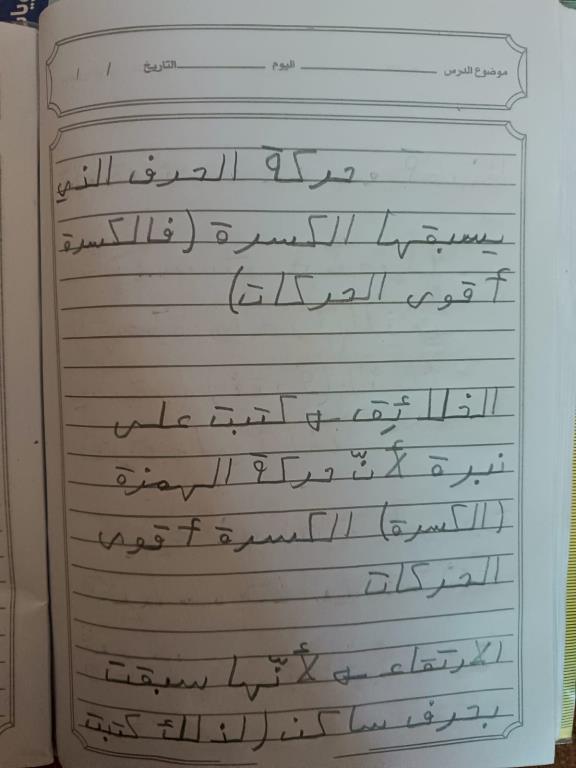 موضوع الدرس ــــــــ اليوم ــــــــ التاريخ / /
حركة الحرف الذي
يسبقها الكسرة (فالكسرة
أقوى الحركات)
الخلائِق ← كتبت على
نبرة لأنّ حركة الهمزة
(الكسرة) الكسرة أقوى
الحركات
الارتقاء ← لأنّها سبقت
بحرف ساكن (لذلك كتبت